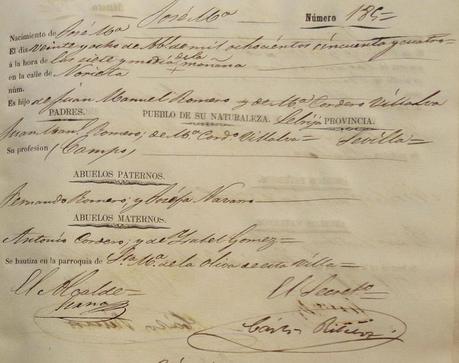 José Mª Número 185=
Nacimiento de José Mª
El dia veinte y ocho de de mil ochocientos cincuenta y cuatro
á la hora de las siete y media de la mañana
en la calle de
núm.
Es hijo de Juan Manuel Romero y de Mª Cordero Villalva
PADRES. PUEBLO DE SU NATURALEZA. Lebrija PROVINCIA.
Juan Manl Romero; de Mª Cordº Villalva= Sevilla=
Su profesion (Campo)
ABUELOS PATERNOS.
Fernando Romero; y Josefa Navarro
ABUELOS MATERNOS.
Antonio Cordero; y de Ysabel Gomez=
Se bautiza en la parroquia de Sta Mª de la Oliva de esta Villa=
El Alcalde= El Secretº
Carlos